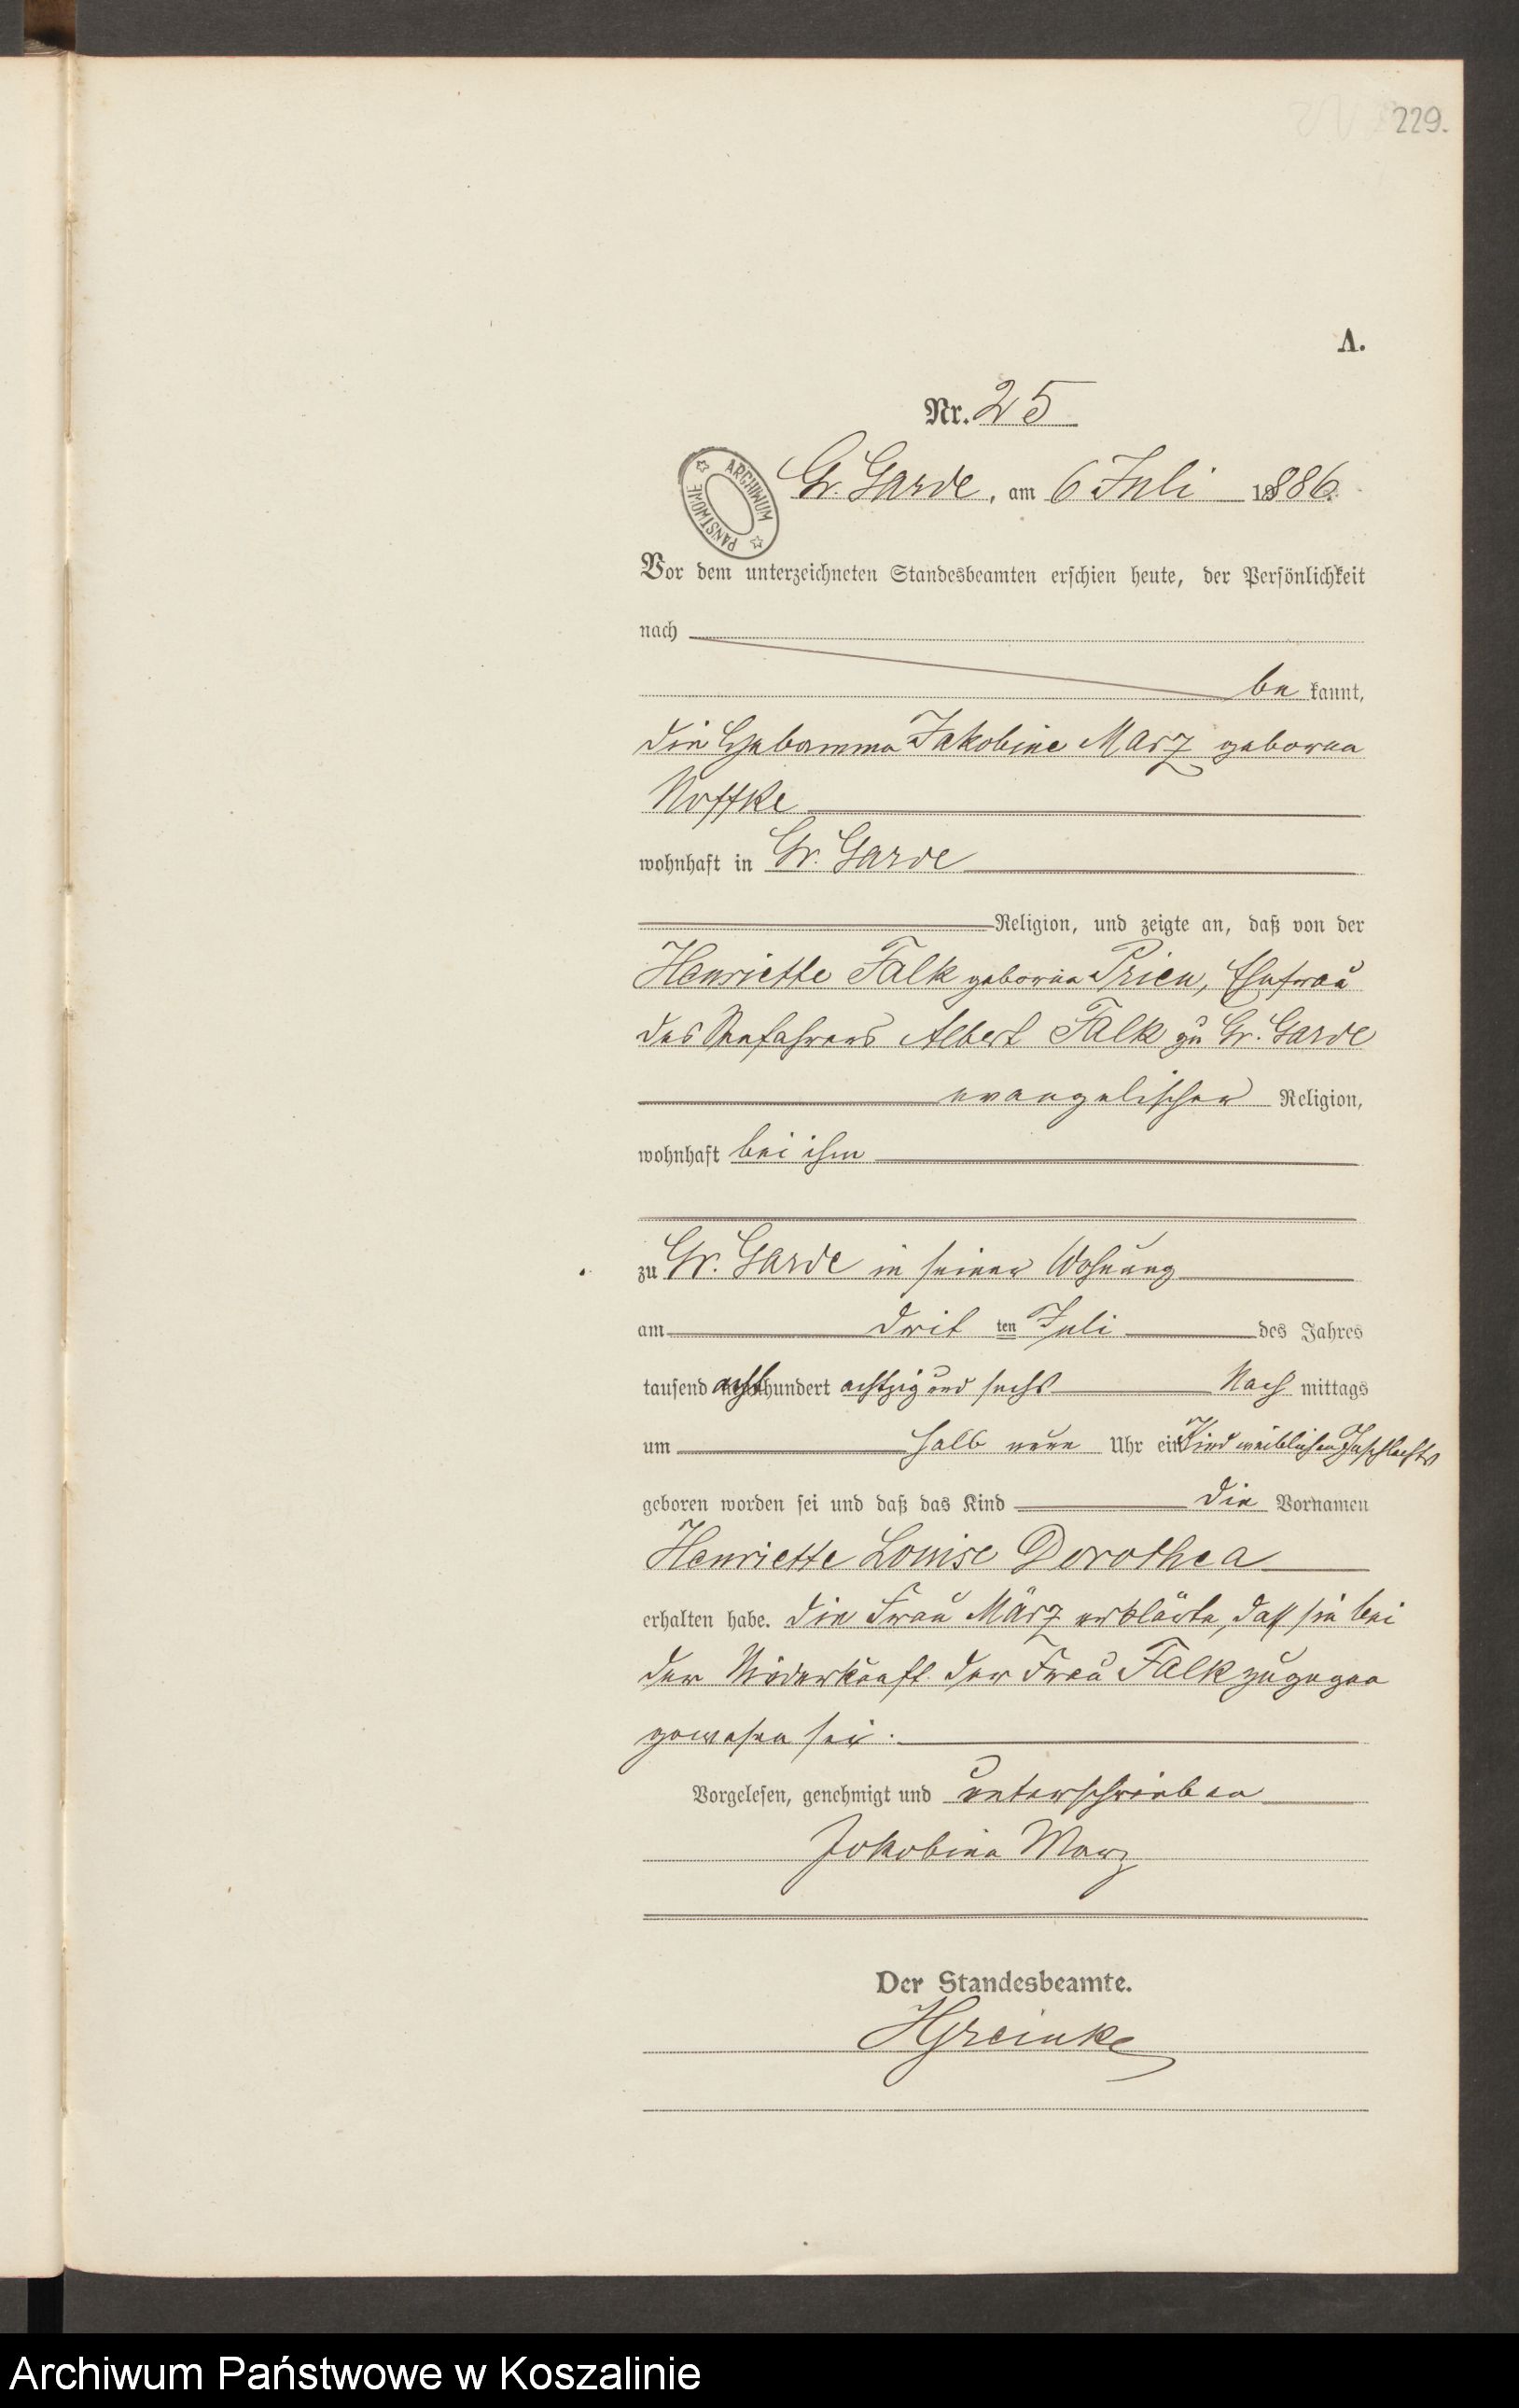 229.
A.
Nr. 25
ARCHIWUM PAŃSTWOWE
Gr. Garde, am 6 Juli 1886.
Vor dem unterzeichneten Standesbeamten erschien heute, der Persönlichkeit
nach
be kannt,
die Hebamme Jakobine März geborne
Noffke
wohnhaft in Gr. Garde
Religion, und zeigte an, daß von der
Henriette Falk geborne Prien, Ehefrau
des Seefahrers Albert Falk zu Gr. Garde
evangelischer Religion,
wohnhaft bei ihm
zu Gr. Garde in seiner Wohnung
am drit ten Juli des Jahres
tausend achthundert achtzig und sechs Nach mittags
um halb neun Uhr ein Kind weiblichen Geschlechts
geboren worden sei und daß das Kind die Vornamen
Henriette Louise Dorothea
erhalten habe. Die Frau März erklärte, daß sie bei
der Niederkunft der Frau Falk zugegen
gewesen sei.
Vorgelesen, genehmigt und unterschrieben
Jakobine März
Der Standesbeamte.
Archiwum Państwowe w Koszalinie